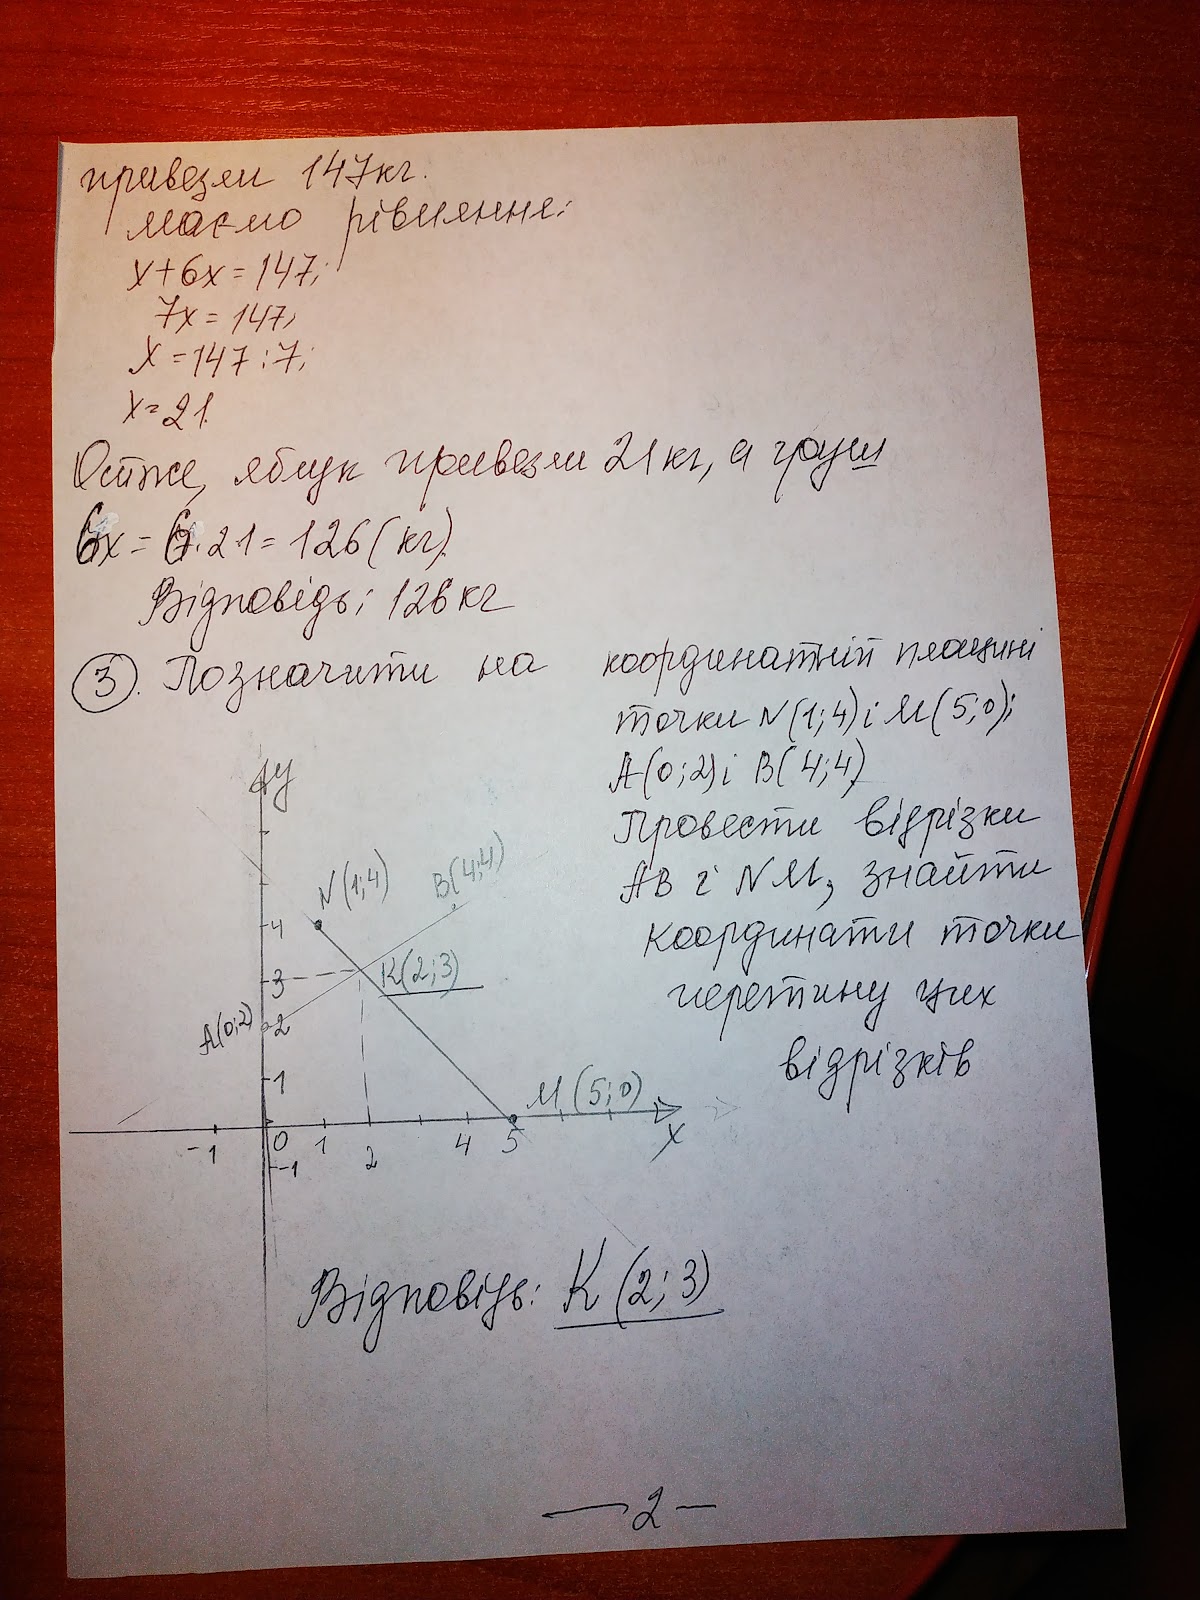 привезли 147кг.
маємо рівняння:
x+6x=147;
7x=147;
x=147:7;
x=21.
Отже, яблук привезли 21кг, а груш
6x=6·21=126(кг).
Відповідь: 126кг
3. Позначити на координатній площині
точки N(1;4) і M(5;0);
A(0;2) і B(4;4)
Провести відрізки
AB і NM, знайти
координати точки
перетину цих
відрізків
y
N(1;4)
B(4;4)
4
K(2;3)
3
A(0;2)
2
1
M(5;0)
-1 0 1 2 4 5 x
-1
Відповідь: K(2;3)
— 2 —